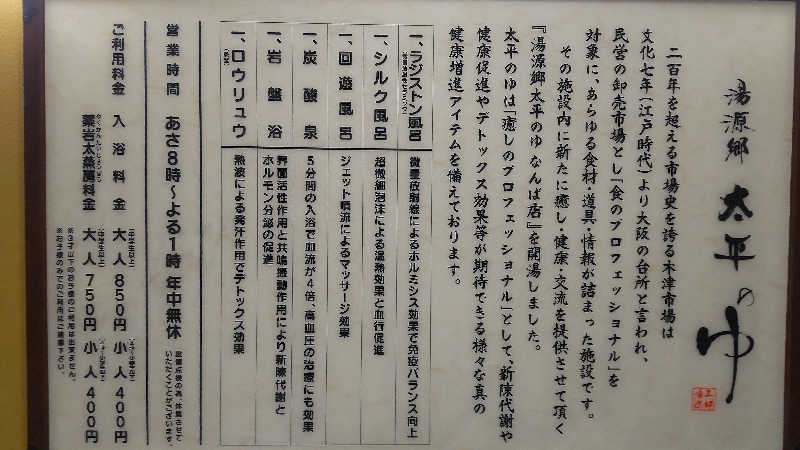 湯源郷 太平のゆ
二百年を超える市場史を誇る木津市場は
文化七年(江戸時代)より大阪の台所と言われ、
民営の卸売市場とし「食のプロフェッショナル」を
対象に、あらゆる食材・道具・情報が詰まった施設です。
その施設内に新たに癒し・健康・交流を提供させて頂く
『湯源郷太平のゆ なんば店』を開湯しました。
太平のゆは「癒しのプロフェッショナル」として、新陳代謝や
健康促進やデトックス効果等が期待できる様々な真の
健康増進アイテムを備えております。
一、ラジストン風呂
微量放射線によるホルミシス効果で免疫バランス向上
一、シルク風呂
超微細泡沫による温熱効果と血行促進
一、回遊風呂
ジェット噴流によるマッサージ効果
一、炭酸泉
5分間の入浴で血流が4倍、高血圧の治療にも効果
一、岩盤浴
界面活性作用と共鳴振動作用により新陳代謝と
ホルモン分泌の促進
一、ロウリュウ
熱波による発汗作用でデトックス効果
営業時間 あさ8時〜よる1時 年中無休
設備点検の為、休業させて
いただくことがございます。
ご利用料金 入浴料金 大人850円 小人400円
薬岩太蒸風料金 大人750円 小人400円
※お子様のみでのご利用はご遠慮下さい。